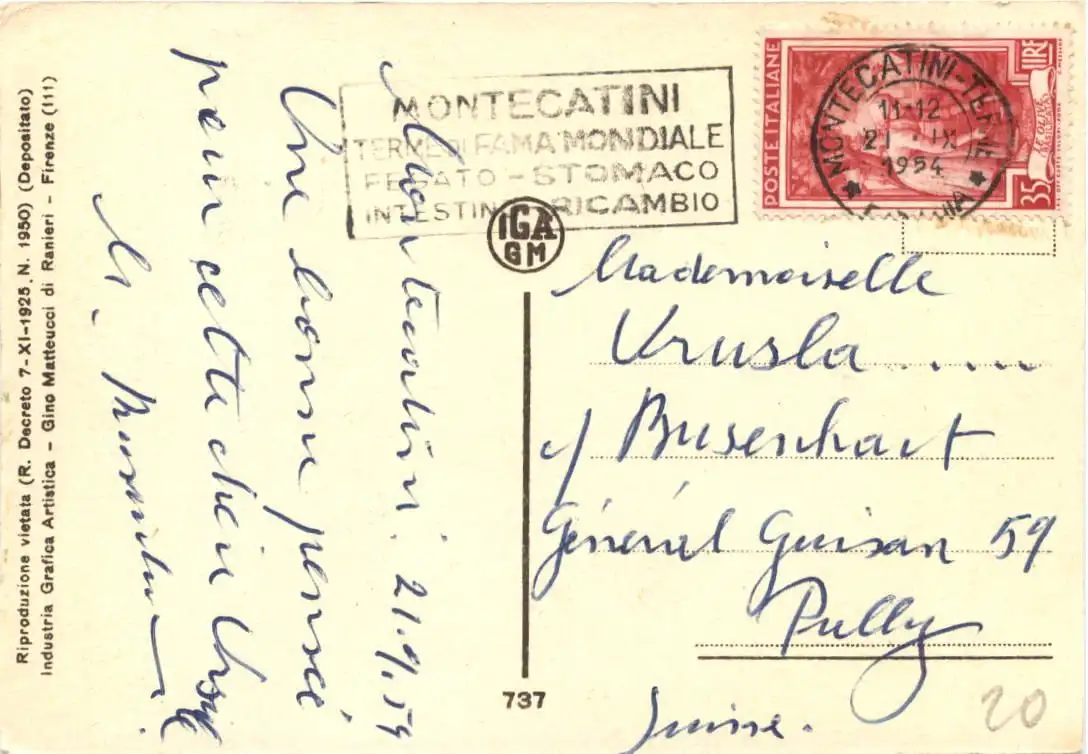 Riproduzione vietata (R. Decreto 7-XI-1925, N. 1950) (Depositato)
Industria Grafica Artistica - Gino Matteucci di Ranieri - Firenze (111)
Montecatini. 21.9.54
Une bonne pensée
pour cette chère Ursule
M.
MONTECATINI
TERME DI FAMA MONDIALE
FEGATO - STOMACO
INTESTINO RICAMBIO
IGA
GM
737
POSTE ITALIANE
LIRE
35
MONTECATINI-TERME
11-12
21 IX
1954
Mademoiselle
Urusla .....
c/ Busenhart
Général Guisan 59
Pully
Suisse.
20